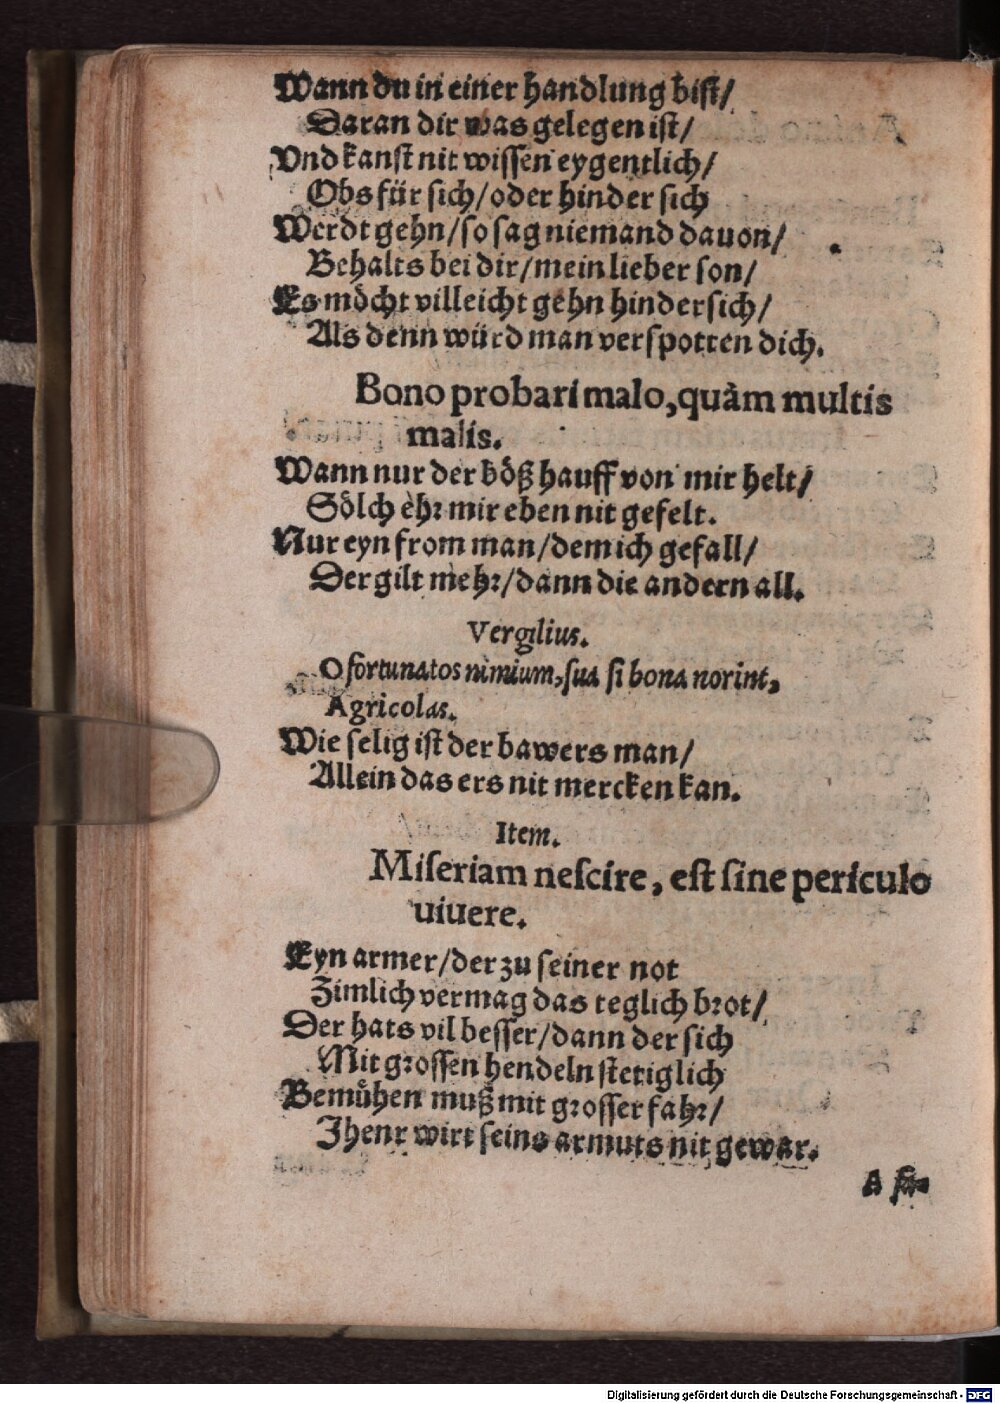 Wann du in einer handlung bist/
Daran dir was gelegen ist/
Vnd kanst nit wissen eygentlich/
Obs für sich/oder hinder sich
Werdt gehn/so sag niemand dauon/
Behalts bei dir/mein lieber son/
Es möcht villeicht gehn hindersich/
Als denn würd man verspotten dich.
Bono probari malo, quàm multis
malis.
Wann nur der böß hauff von mir helt/
Sölch ehr mir eben nit gefelt.
Nur eyn from man/dem ich gefall/
Der gilt mehr/dann die andern all.
Vergilius.
O fortunatos nimium, sua si bona norint,
Agricolas.
Wie selig ist der bawers man/
Allein das ers nit mercken kan.
Item.
Miseriam nescire, est sine periculo
uiuere.
Eyn armer/der zu seiner not
Zimlich vermag das teglich brot/
Der hats vil besser/dann der sich
Mit grossen hendeln stetiglich
Bemühen muß mit grosser fahr/
Jhenr wirt seins armuts nit gewar.
Digitalisierung gefördert durch die Deutsche Forschungsgemeinschaft - DFG